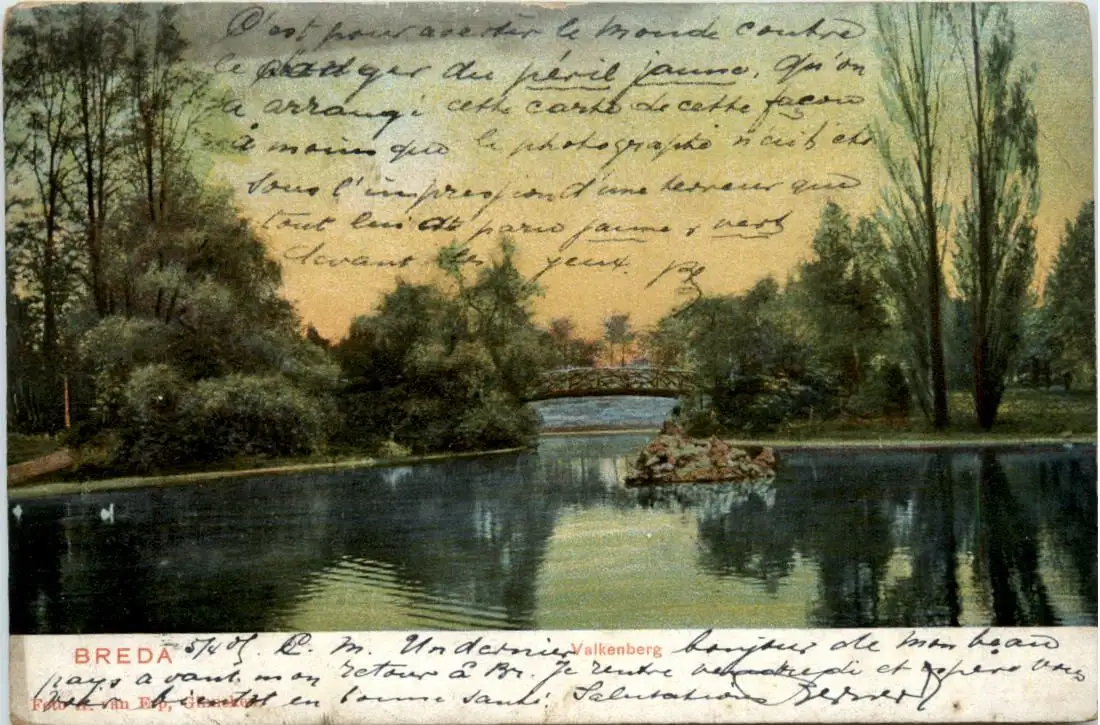 C'est pour avertir le monde contre
le danger du péril jaune, qu'on
a arrangé cette carte de cette façon
à moins que le photographe n'ait été
sous l'impression d'une terreur que
tout lui a paru jaune & vert
devant les yeux.
BREDA 5/4 05. C. M. Un dernier bonjour de mon beau
Valkenberg
pays avant mon retour à Br. Je rentre vendredi et espère vous
voir bientôt en bonne santé. Salutations
Foto H. van Erp, Ginneken